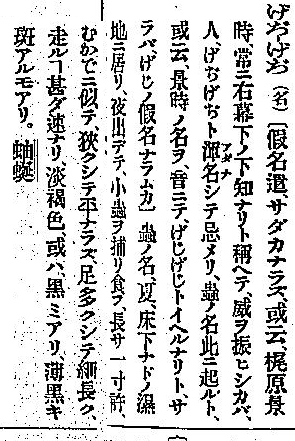 げぢげぢ（名）〔假名遣、サダカナラズ、或云、梶原景
時、常ニ右幕下ノ下知ナリト稱ヘテ、威ヲ振ヒシカバ、
人、げぢげぢト渾名シテ忌メリ、蟲ノ名此ニ起ルト、
アダナ
或云、景時ノ名ヲ、音ニテ、げじげじトイヘルナリト、サ
ラバ、げじノ假名ナラムカ〕蟲ノ名、夏、床下ナドノ濕
地ニ居リ、夜出デテ、小蟲ヲ捕リ食フ、長サ一寸許、
むかでニ似テ狹クシテ平ナラズ、足多クシテ細長ク、
走ルコト甚ダ速ナリ、淡褐色、或ハ、黑ミアリ、薄黑キ
斑アルモアリ。蚰蜒